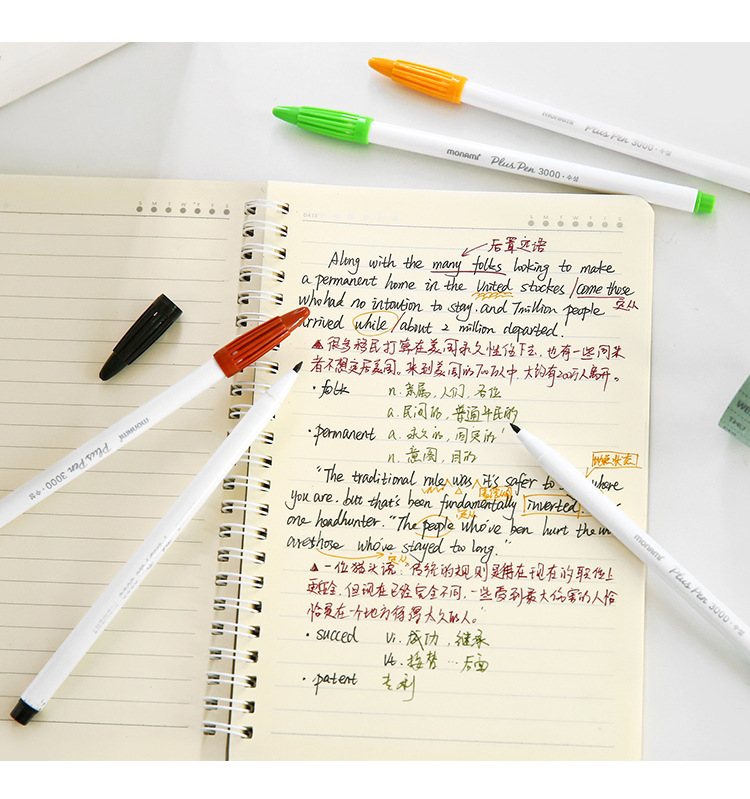 monami Plus Pen 3000·수성
monami Plus Pen 3000·수성
S M T W T F S
DATE
S M T W T F S
后置定语
Along with the many folks looking to make
a permanent home in the United stockes / come those
who had no intention to stay. and 7million people
arrived while / about 2 million departed.
▲很多移民打算在美国永久性住下去，也有一些同来
者不想定居美国。来到美国的700万人中，大约有200万人离开。
·folk n. 亲属，人们，各位
a. 民间的，普通平民的
·permanent a. 永久的，固定的
n. 意图，目的
"The traditional rule was it's safer to where
you are. but that's been fundamentally inverted.
one headhunter. "The people who've ben hurt the
are those who've stayed too long."
▲一位猎头说："传统的规则是待在现在的职位上
更安全，但现在已经完全不同，一些受到最大伤害的人恰
恰是在一个地方待得太久的人。"
·succed vi. 成功，继承
vt. 接替…后面
·patent 专利
monami Plus Pen 3000·수성
monami Plus Pen 3000